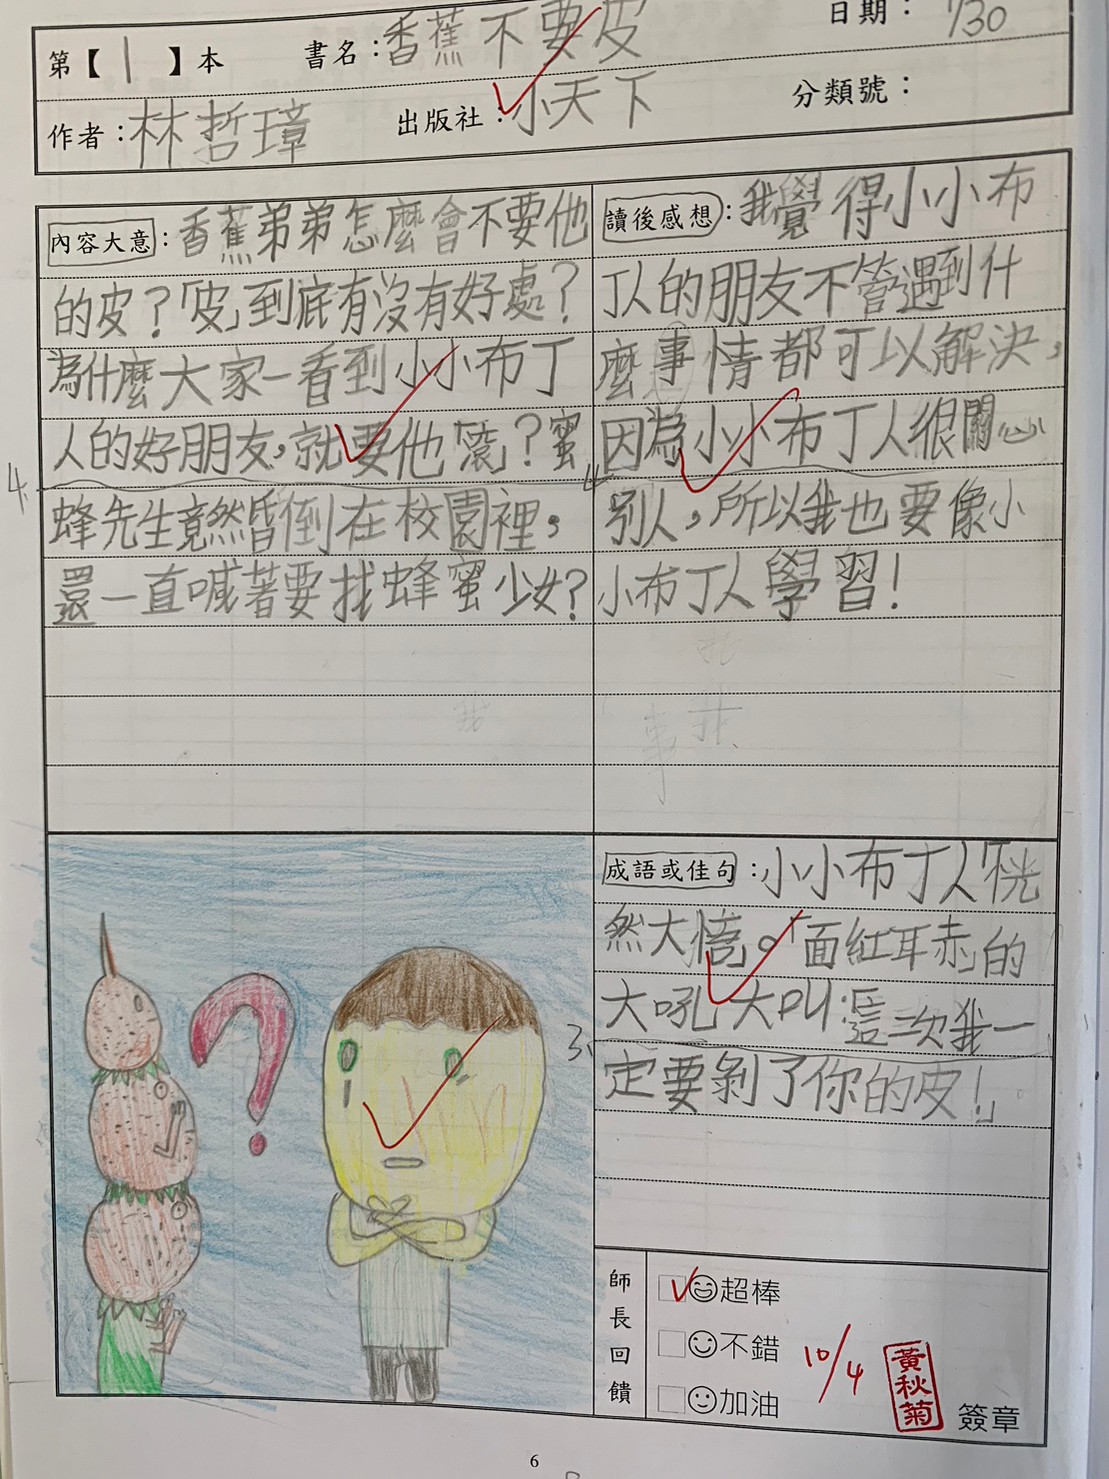 第【1】本 書名：香蕉不要皮 日期：7/30
作者：林哲璋 出版社：小天下 分類號：
內容大意：香蕉弟弟怎麼會不要他
的皮？「皮」到底有沒有好處？
為什麼大家一看到小小布丁
人的好朋友，就要他「滾」？蜜
蜂先生竟然昏倒在校園裡，
還一直喊著要找蜂蜜少女？
讀後感想：我覺得小小布
丁人的朋友不管遇到什
麼事情都可以解決，
因為小小布丁人很關心
別人，所以我也要像小
小布丁人學習！
成語或佳句：小小布丁人「恍
然大悟。「面紅耳赤」的
大吼大叫：這次我一
定要剝了你的皮！」
師長回饋
超棒
不錯
加油
10/4
黃秋菊
簽章
6